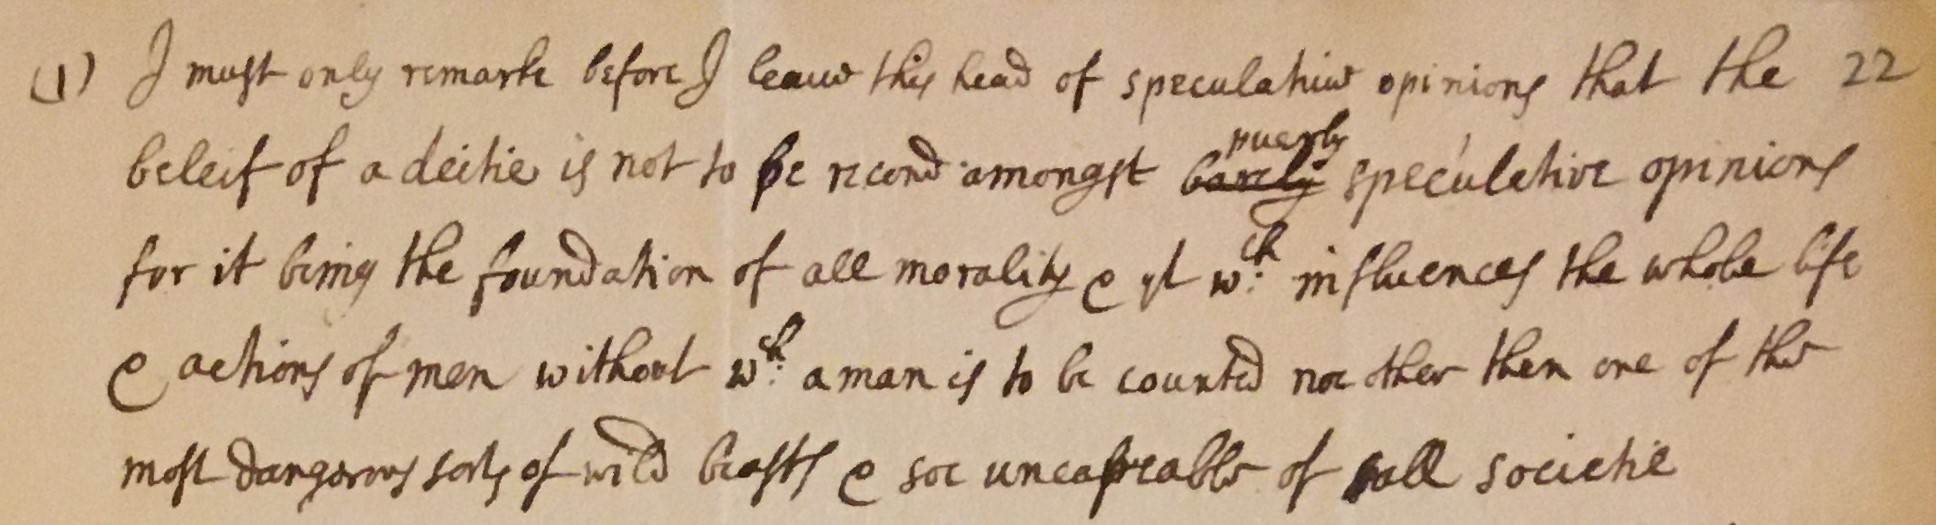 (1) I must only remarke before I leave this head of speculative opinions that the 22
beleif of a deitie is not to be recond amongst barely puerly speculative opinions
for it being the foundation of all morality & yt wch: influences the whole life
& actions of men without wch: a man is to be counted noe other then one of the
most dangerous sorts of wild beasts & soe uncapeable of all societie